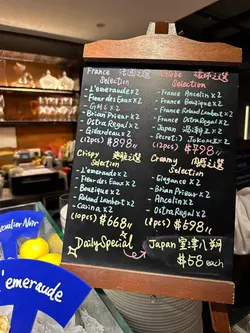 France 法國之選
Selection
- L'emeraude x 2
- Fleur des Eaux x 2
- Gills x 2
- Brian Prieur x 2
- Ostra Regal x 2
- Girardeau x 2
(12pcs) $898
Globe 環球之選
Selection
- France Ancelin x 2
- France Boutique x 2
- France Roland Lambert x 2
- France Ostra Regal x 2
- Japan
- Secret
(12pcs) $798
Crispy
Selection
- L'emeraude x 2
- Fleur des Eaux x 2
- Boutique x 2
- Roland Lambert x 2
- x 2
(10pcs) $668
Creamy
Selection
- Elegance x 2
- Brian Prieur x 2
- Ancelin x 2
- Ostra Regal x 2
(8pcs) $598
Daily Special
Japan 室津八朔
$58 each
Noir
L'emeraude